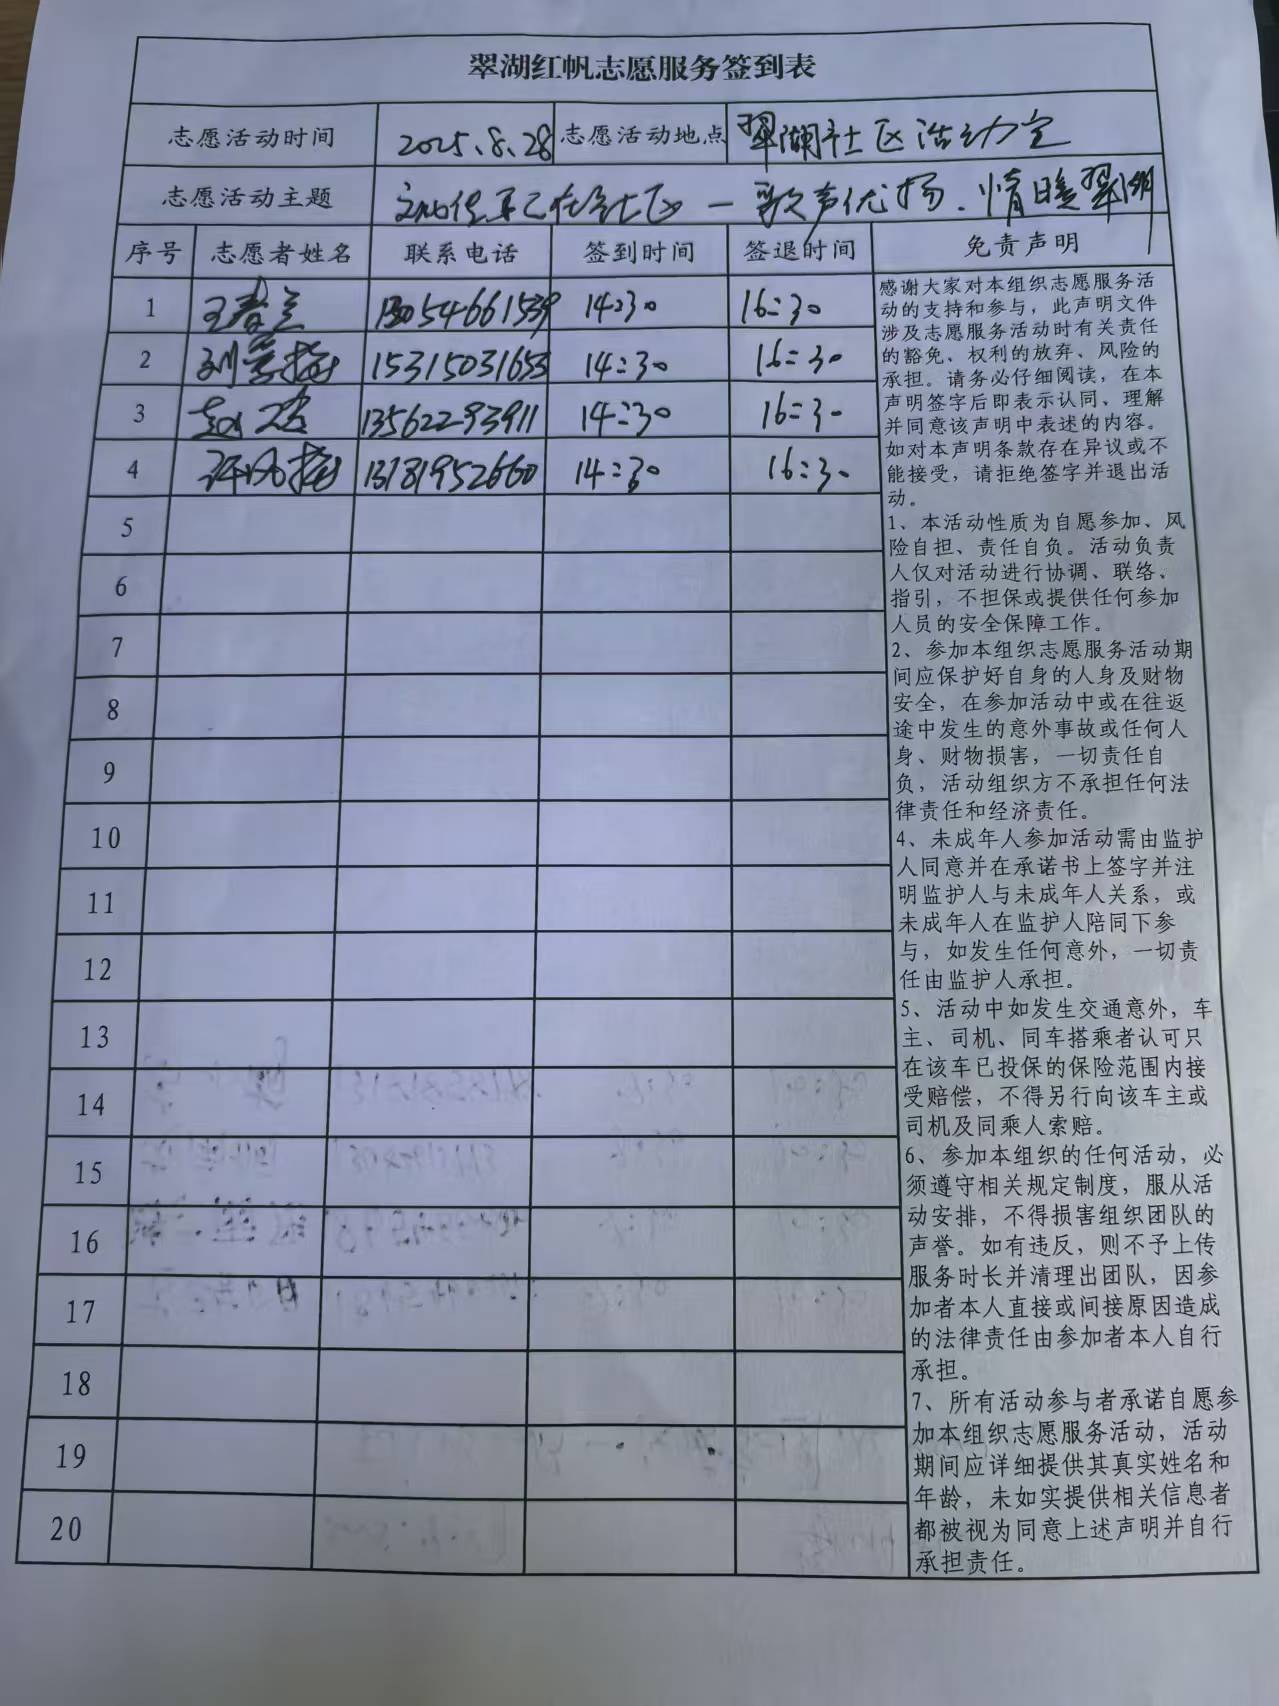 翠湖红帆志愿服务签到表
志愿活动时间 2025.8.28 志愿活动地点 翠湖社区活动室
志愿活动主题 社区 — 歌声优扬.情暖翠湖
序号 志愿者姓名 联系电话 签到时间 签退时间 免责声明
1 王春兰 13054661539 14:30 16:30
2 刘 15315031653 14:30 16:30
3 赵 13562293911 14:30 16:30
4 许风梅 13181952660 14:30 16:30
5
6
7
8
9
10
11
12
13
14
15
16
17
18
19
20
感谢大家对本组织志愿服务活
动的支持和参与，此声明文件
涉及志愿服务活动时有关责任
的豁免、权利的放弃、风险的
承担。请务必仔细阅读，在本
声明签字后即表示认同、理解
并同意该声明中表述的内容。
如对本声明条款存在异议或不
能接受，请拒绝签字并退出活
动。
1、本活动性质为自愿参加、风
险自担、责任自负。活动负责
人仅对活动进行协调、联络、
指引，不担保或提供任何参加
人员的安全保障工作。
2、参加本组织志愿服务活动期
间应保护好自身的人身及财物
安全，在参加活动中或在往返
途中发生的意外事故或任何人
身、财物损害，一切责任自
负，活动组织方不承担任何法
律责任和经济责任。
4、未成年人参加活动需由监护
人同意并在承诺书上签字并注
明监护人与未成年人关系，或
未成年人在监护人陪同下参
与，如发生任何意外，一切责
任由监护人承担。
5、活动中如发生交通意外，车
主、司机、同车搭乘者认可只
在该车已投保的保险范围内接
受赔偿，不得另行向该车主或
司机及同乘人索赔。
6、参加本组织的任何活动，必
须遵守相关规定制度，服从活
动安排，不得损害组织团队的
声誉。如有违反，则不予上传
服务时长并清理出团队，因参
加者本人直接或间接原因造成
的法律责任由参加者本人自行
承担。
7、所有活动参与者承诺自愿参
加本组织志愿服务活动，活动
期间应详细提供其真实姓名和
年龄，未如实提供相关信息者
都被视为同意上述声明并自行
承担责任。